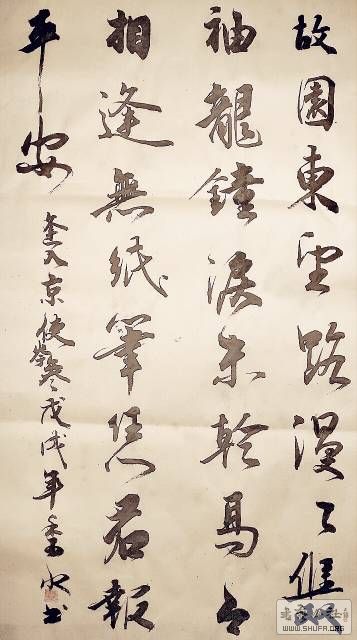 故園東望路漫々雙
袖龍鐘淚未乾馬上
相逢無紙筆凭君報
平安
逢入京使岑參戊戌年水書
WWW.SHUFA.ORG